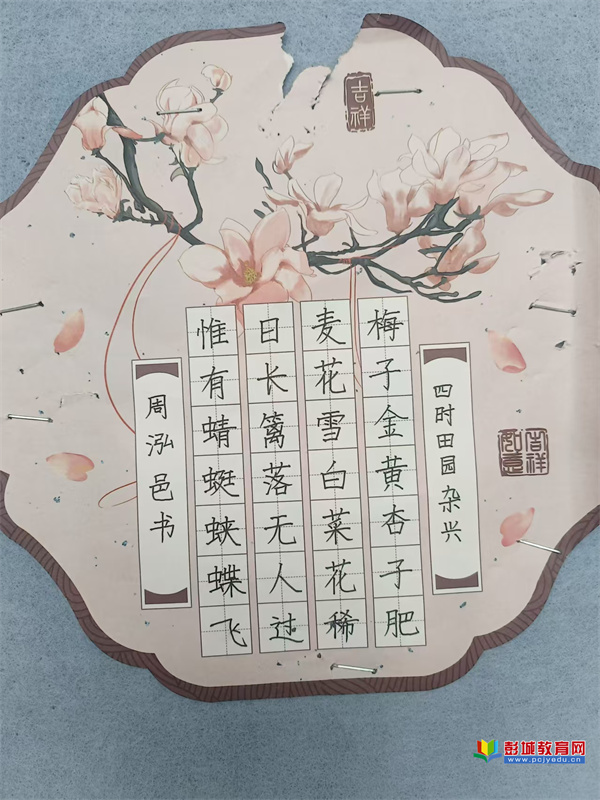 吉祥
四时田园杂兴
梅子金黄杏子肥
麦花雪白菜花稀
日长篱落无人过
惟有蜻蜓蛱蝶飞
周泓邑书
吉祥如意
彭城教育网
www.pcjyedu.cn